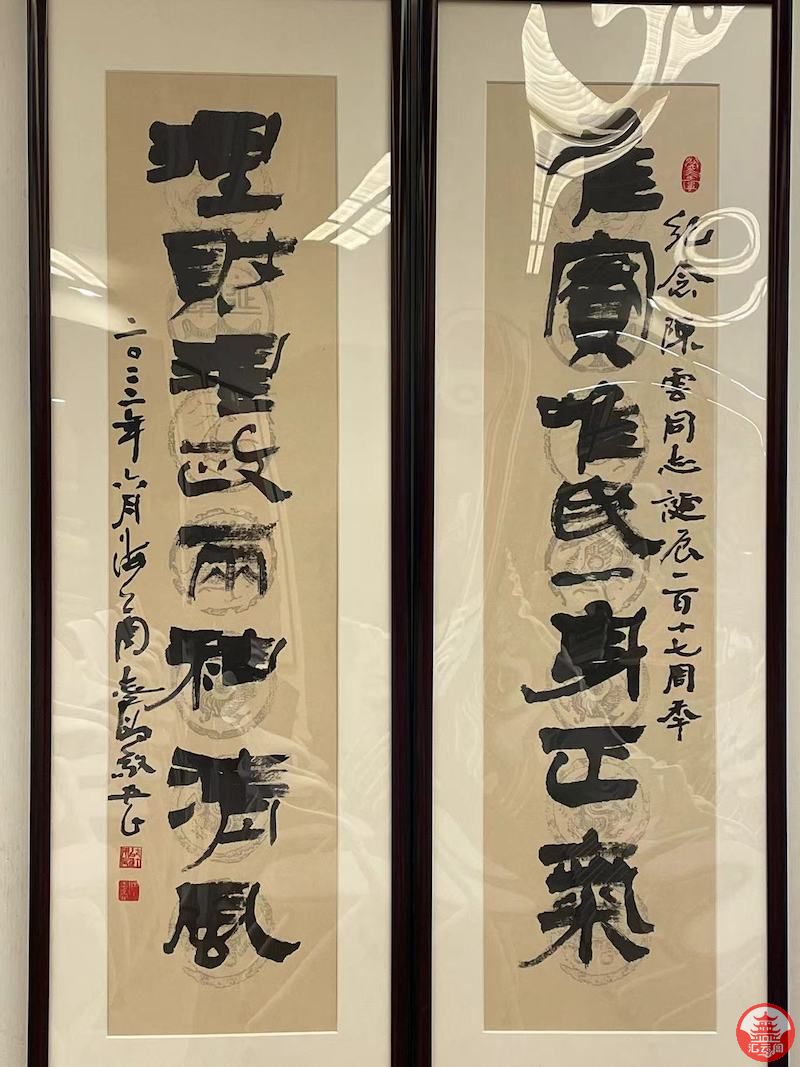 紀念陳雲同志誕辰一百十七周年
唯實唯民一身正氣
理財理政兩袖清風
二〇二二年六月海上周志高敬书
汇云阁